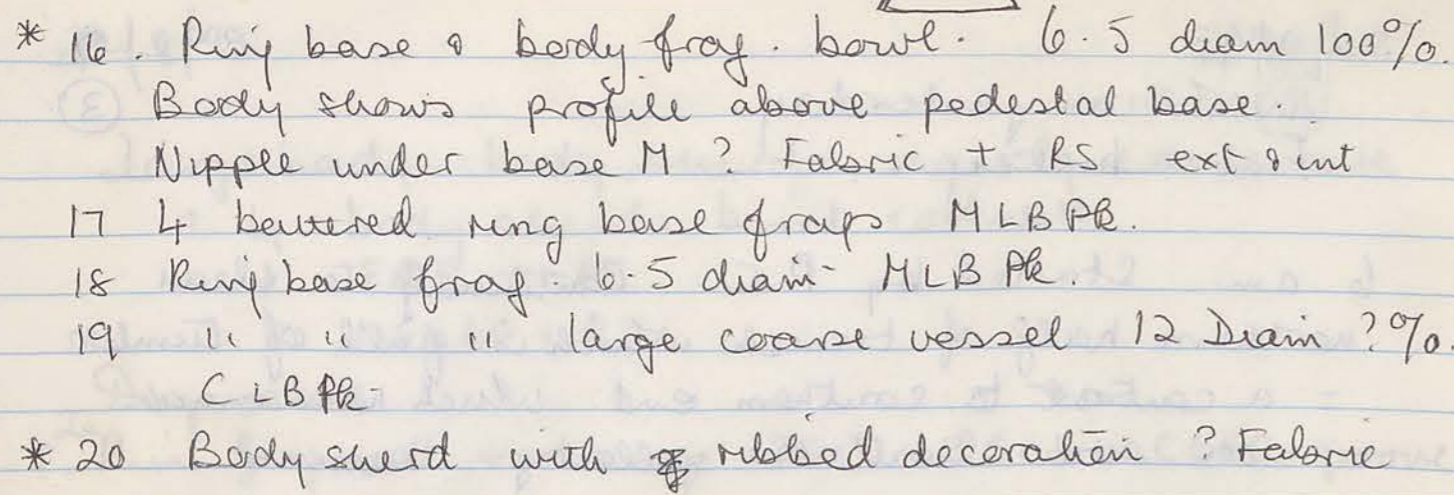 * 16. Ring base & body frag. bowl. 6.5 diam 100%.
Body shows profile above pedestal base.
Nipple under base M ? Fabric + RS ext & int
17 4 battered ring base frags MLBPk.
18 Ring base frag. 6.5 diam - MLB Pk.
19 " " " large coarse vessel 12 Diam ?%.
CLB Pk -
* 20 Body sherd with ribbed decoration ? Fabric